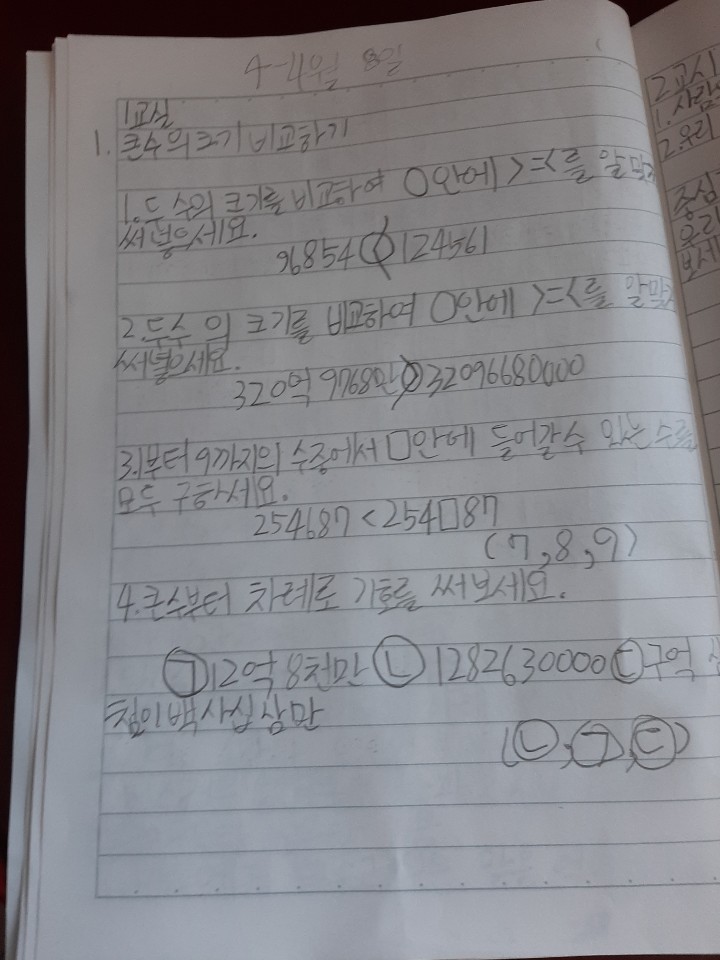 4-4월 8일
1교실
1. 큰수의크기 비교하기
1. 두 수의 크기를 비교하여 ○안에 >=<를 알맞게
써넣으세요.
96854 < 124561
2. 두수 의 크기를 비교하여 ○안에 >=<를 알맞
써넣으세요.
320억 9768만 > 32096680000
3. 1부터 9까지의 수중에서 □안에 들어갈수 있는 수를
모두 구하세요.
254687 < 254□87
(7,8,9)
4. 큰수부터 차례로 기호를 써보세요.
㉠12억 8천만 ㉡1282630000 ㉢구억
첨이백사십삼만
(㉡,㉠,㉢)
2교시
1. 사람
2. 우리
중심
우리
보세